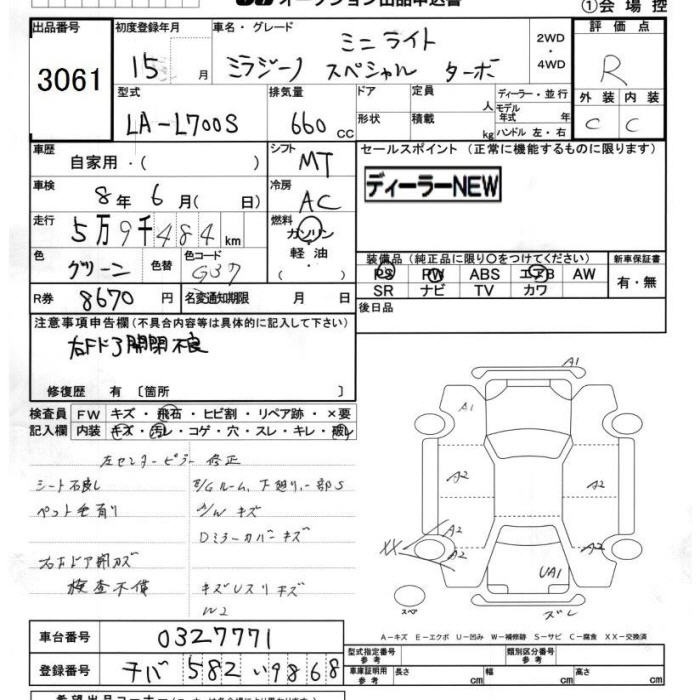 オークション出品申込書
①会場控
出品番号 初度登録年月 車名・グレード 2WD・4WD 評価点
3061 15 月 ミニライト R
ミラジーノ スペシャル ターボ
型式 排気量 ドア 定員 人 ディーラー・並行 外装 内装
LA-L700S 660cc 形状 積載 kg モデル年式 年 C C
ハンドル 左・右
車歴 シフト セールスポイント (正常に機能するものに限ります)
自家用・( ) MT ディーラーNEW
車検 8年6月( 日) 冷房 AC
走行 5万9千484km 燃料 ガソリン・軽油・( )
色 グリーン 色替 色コード G37
装備品(純正品に限り○をつけてください) 新車保証書
PS PW ABS エアB AW 有・無
SR ナビ TV カワ
R券 8670円 名変通知期限 月 日 後日品
注意事項申告欄(不具合内容等は具体的に記入して下さい)
右Fドア開閉不良
修復歴 有 〔箇所 〕
検査員 FW キズ・飛石・ヒビ割・リペア跡・×要
記入欄 内装 キズ・汚レ・コゲ・穴・スレ・キレ・破レ
左センターピラー修正
シート汚れ E/Gルーム、下廻り、一部S
ペット毛有り A/Wキズ
Dミラーカバーキズ
検査不備 キズUスリキズ
W2
A1
A1
A2 A2
XX A2 A2
A2
UA1
スペ ズレ
A-キズ E-エクボ U-凹み W-補修跡 S-サビ C-腐食 XX-交換済
車台番号 0327771
登録番号 チバ 582 い 9868
型式指定番号 参考 類別区分番号 参考
車庫証明用 参考 長さ cm 幅 cm 高さ cm